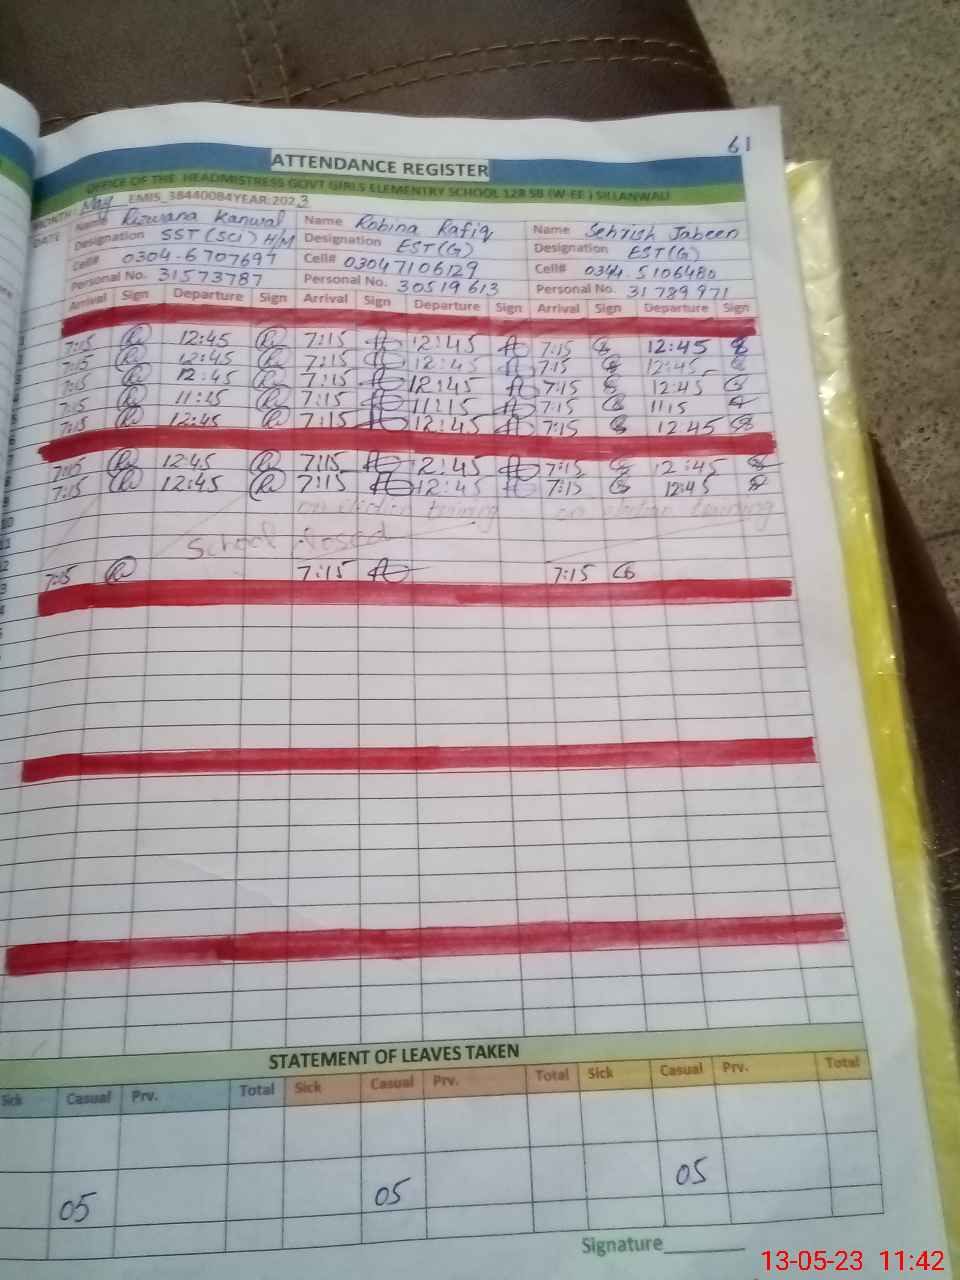 61
ATTENDANCE REGISTER
OFFICE OF THE HEADMISTRESS GOVT GIRLS ELEMENTRY SCHOOL 128 SB (W-EE) SILLANWALI
MONTH: May EMIS_38440084YEAR:2023
DATE Name Rizwana Kanwal Name Robina Rafiq Name Sehrish Jabeen
Designation SST (SCI) H/M Designation EST(G) Designation EST(G)
Cell# 0304-6707697 Cell# 03047106129 Cell# 0344-5106480
Personal No. 31573787 Personal No. 30519613 Personal No. 31789971
Arrival Sign Departure Sign Arrival Sign Departure Sign Arrival Sign Departure Sign
7:15 12:45 7:15 12:45 7:15 12:45
7:15 12:45 7:15 12:45 7:15 12:45
7:15 12:45 7:15 12:45 7:15 12:45
7:15 11:15 7:15 11:15 7:15 11:15
7:15 12:45 7:15 12:45 7:15 12:45
7:15 12:45 7:15 12:45 7:15 12:45
7:15 12:45 7:15 12:45 7:15 12:45
on election training on election training
School closed
7:15 7:15 7:15
STATEMENT OF LEAVES TAKEN
Sick Casual Prv. Total Sick Casual Prv. Total Sick Casual Prv. Total
05 05 05
Signature
13-05-23 11:42